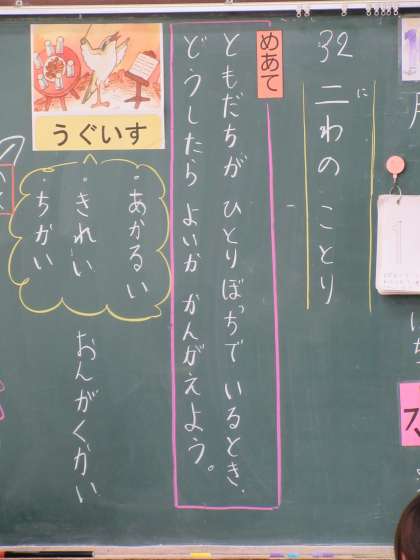 32
二わの ことり
に
めあて
ともだちが ひとりぼっちで いるとき、
どうしたら よいか かんがえよう。
うぐいす
・あかるい
・きれい
・ちかい
おんがくかい